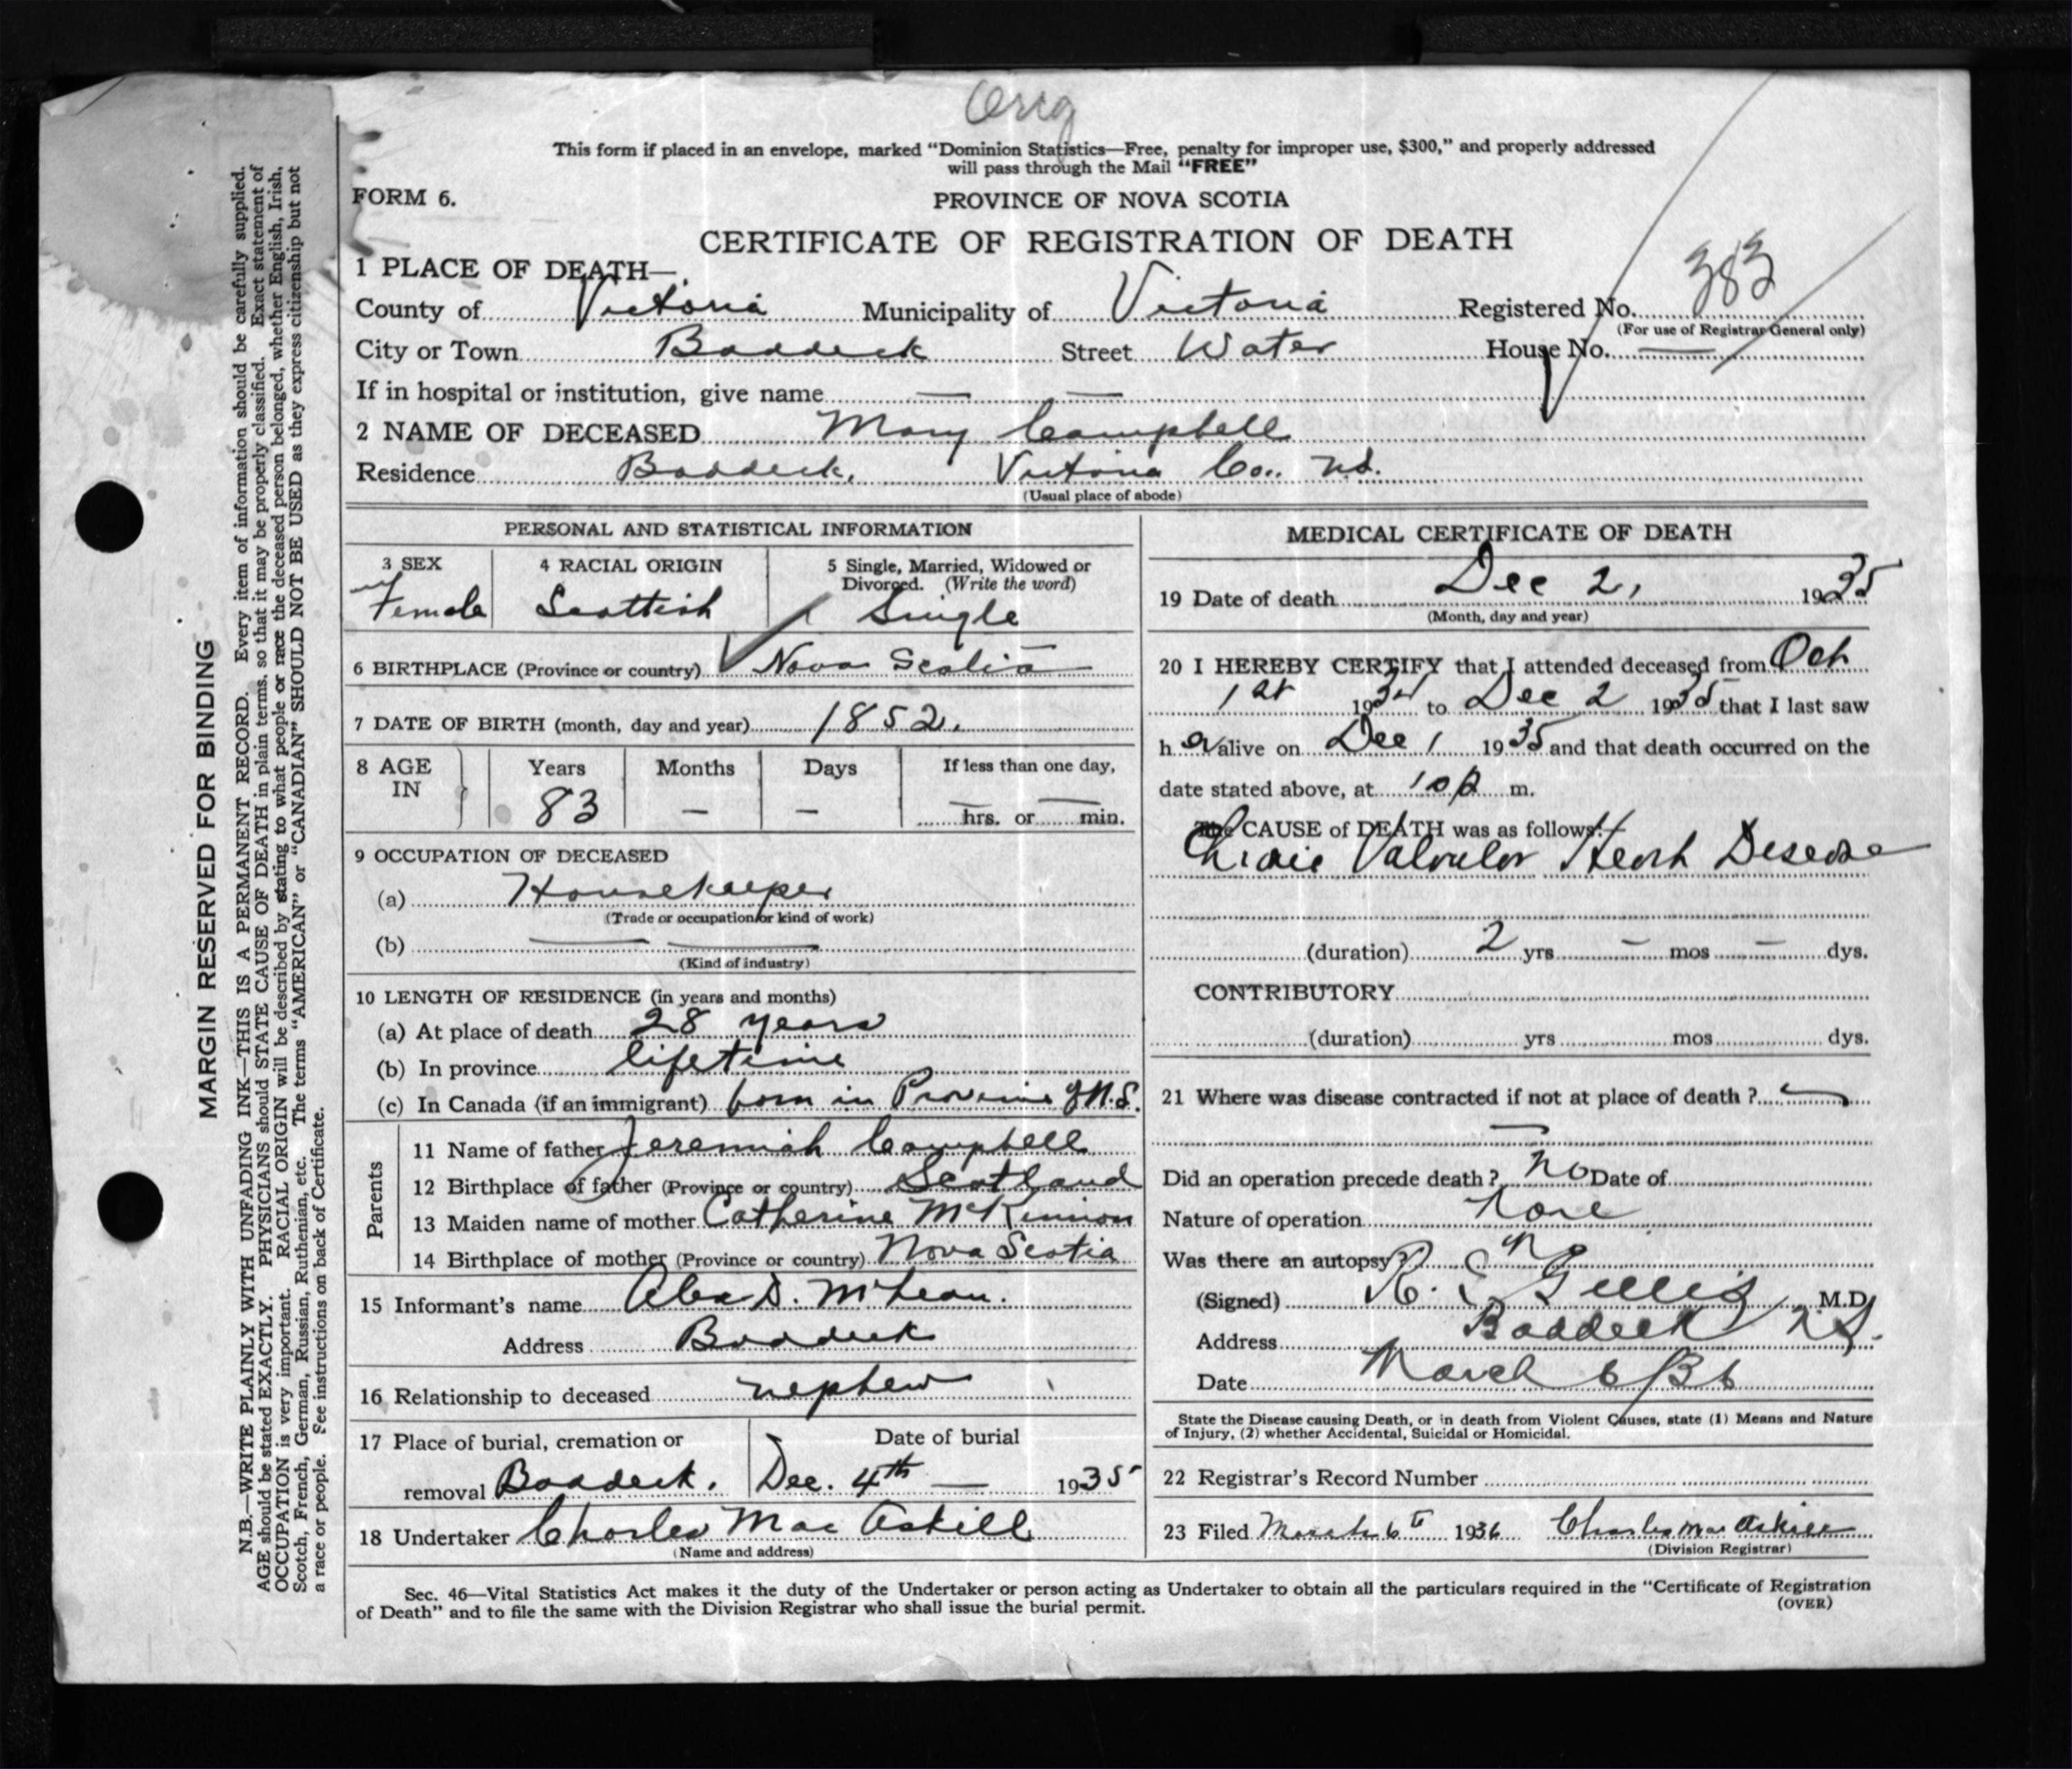 Orig
This form if placed in an envelope, marked "Dominion Statistics—Free, penalty for improper use, $300," and properly addressed
will pass through the Mail "FREE"
FORM 6.
PROVINCE OF NOVA SCOTIA
CERTIFICATE OF REGISTRATION OF DEATH
1 PLACE OF DEATH—
County of Victoria Municipality of Victoria Registered No. 383
(For use of Registrar General only)
City or Town Baddeck Street Water House No. —
If in hospital or institution, give name — —
2 NAME OF DECEASED Mary Campbell
Residence Baddeck, Victoria Co. N.S.
(Usual place of abode)
PERSONAL AND STATISTICAL INFORMATION
3 SEX 4 RACIAL ORIGIN 5 Single, Married, Widowed or
Divorced. (Write the word)
Female Scottish Single
6 BIRTHPLACE (Province or country) Nova Scotia
7 DATE OF BIRTH (month, day and year) 1852.
8 AGE IN Years Months Days If less than one day,
83 — — — hrs. or — min.
9 OCCUPATION OF DECEASED
(a) Housekeeper
(Trade or occupation or kind of work)
(b) — —
(Kind of industry)
10 LENGTH OF RESIDENCE (in years and months)
(a) At place of death 28 years
(b) In province lifetime
(c) In Canada (if an immigrant) born in Province of N.S.
Parents
11 Name of father Jeremiah Campbell
12 Birthplace of father (Province or country) Scotland
13 Maiden name of mother Catherine McKinnon
14 Birthplace of mother (Province or country) Nova Scotia
15 Informant's name Alex D. McLean.
Address Baddeck
16 Relationship to deceased nephew
17 Place of burial, cremation or Date of burial
removal Baddeck. Dec. 4th — 1935
18 Undertaker Charles MacAskill
(Name and address)
MEDICAL CERTIFICATE OF DEATH
19 Date of death Dec 2, 1935
(Month, day and year)
20 I HEREBY CERTIFY that I attended deceased from Oct
1st 193 to Dec 2 1935 that I last saw
h er alive on Dec 1 1935 and that death occurred on the
date stated above, at 10 p m.
The CAUSE of DEATH was as follows:—
Chronic Valvular Heart Disease
(duration) 2 yrs — mos — dys.
CONTRIBUTORY
(duration) yrs mos dys.
21 Where was disease contracted if not at place of death ? —
—
Did an operation precede death ? No Date of
Nature of operation None
Was there an autopsy? No
(Signed) Gillis M.D.
Address Baddeck N.S.
Date March 6/36
State the Disease causing Death, or in death from Violent Causes, state (1) Means and Nature
of Injury, (2) whether Accidental, Suicidal or Homicidal.
22 Registrar's Record Number
23 Filed March 6th 1936 Charles MacAskill
(Division Registrar)
Sec. 46—Vital Statistics Act makes it the duty of the Undertaker or person acting as Undertaker to obtain all the particulars required in the "Certificate of Registration
of Death" and to file the same with the Division Registrar who shall issue the burial permit.
(OVER)
MARGIN RESERVED FOR BINDING
N.B.—WRITE PLAINLY WITH UNFADING INK—THIS IS A PERMANENT RECORD. Every item of information should be carefully supplied.
AGE should be stated EXACTLY. PHYSICIANS should STATE CAUSE OF DEATH in plain terms, so that it may be properly classified. Exact statement of
OCCUPATION is very important. RACIAL ORIGIN will be described by stating to what people or race the deceased person belonged, whether English, Irish,
Scotch, French, German, Russian, Ruthenian, etc. The terms "AMERICAN" or "CANADIAN" SHOULD NOT BE USED as they express citizenship but not
a race or people. See instructions on back of Certificate.